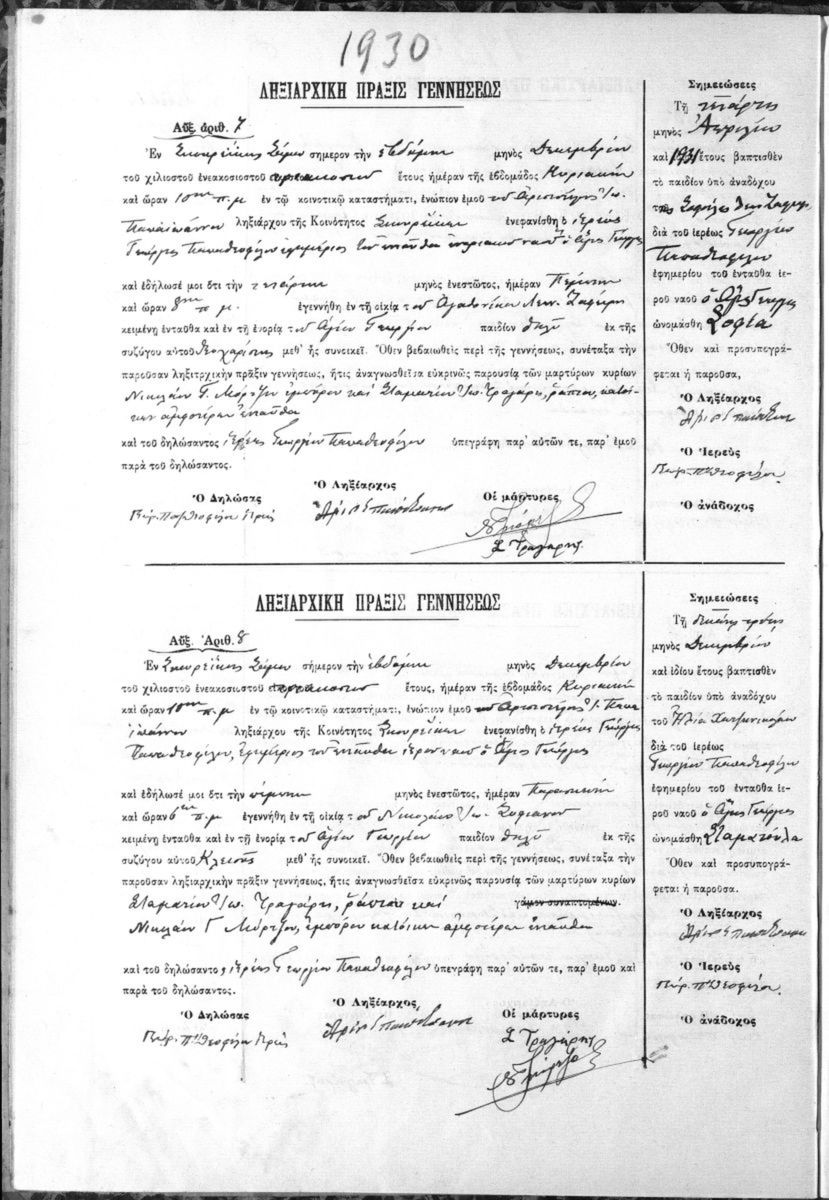 1930
ΛΗΞΙΑΡΧΙΚΗ ΠΡΑΞΙΣ ΓΕΝΝΗΣΕΩΣ
Αὔξ. ἀριθ. 7
Ἐν Σκουρέϊκης Σάμου σημερον τὴν ἑβδόμην μηνὸς Δεκεμβρίου
τοῦ χιλιοστοῦ ἐνεακοσιοστοῦ τριακοστοῦ ἔτους ἡμέραν τῆς ἑβδομάδος Κυριακὴν
καὶ ὥραν 10ην π.μ ἐν τῷ κοινοτικῷ καταστήματι, ἐνώπιον ἐμοῦ τοῦ Ἀριστοτέλους Ἰω.
Παπαϊωάννου ληξιάρχου τῆς Κοινότητος Σκουρέϊκων ἐνεφανίσθη ὁ ἱερεὺς
Γεώργιος Παπαθεοφίλου ἐφημέριος τοῦ ἐνταῦθα ναοῦ ὁ Ἅγιος Γεώργιος
καὶ ἐδήλωσέ μοι ὅτι τὴν τετάρτην μηνὸς ἐνεστῶτος, ἡμέραν Πέμπτην
καὶ ὥραν 8ην π.μ. ἐγεννήθη ἐν τῇ οἰκίᾳ του Ἀγαθονίκου Ζαφείρη
κειμένῃ ἐνταῦθα καὶ ἐν τῇ ἐνορίᾳ του Ἁγίου Γεωργίου παιδίον θῆλυ ἐκ τῆς
συζύγου αὐτοῦ Θεοχαρίτης μεθ' ἧς συνοικεῖ. Ὅθεν βεβαιωθεὶς περὶ τῆς γεννήσεως, συνέταξα τὴν
παροῦσαν ληξιτρχικὴν πρᾶξιν γεννήσεως, ἥτις ἀναγνωσθεῖσα εὐκρινῶς παρουσίᾳ τῶν μαρτύρων κυρίων
Νικολάου Γ. Μόρτζου ἐμπόρου καὶ Σταματίου Ἰω. Τραγάρη, ῥάπτου, κατοί-
κων ἀμφοτέρων ἐνταῦθα
καὶ τοῦ δηλώσαντος ἱερέως Γεωργίου Παπαθεοφίλου ὑπεγράφη παρ' αὐτῶν τε, παρ' ἐμοῦ
παρὰ τοῦ δηλώσαντος.
Ὁ Δηλώσας
Ὁ Ληξίαρχος
Οἱ μάρτυρες
Σ Τραγάρης.
Σημειώσεις
Τῇ τετάρτῃ
μηνὸς Ἀπριλίου
καὶ 1931 ἔτους βαπτισθὲν
τὸ παιδίον ὑπὸ ἀναδόχου
διὰ τοῦ ἱερέως Γεωργίου
Παπαθεοφίλου
ἐφημερίου τοῦ ἐνταῦθα ἱε-
ροῦ ναοῦ ὁ Ἅγιος Γεώργιος
ὠνομάσθη Σοφία
Ὅθεν καὶ προσυπογρά-
φεται ἡ παροῦσα,
Ὁ Ληξίαρχος
Ὁ Ἱερεὺς
Ὁ ἀνάδοχος
ΛΗΞΙΑΡΧΙΚΗ ΠΡΑΞΙΣ ΓΕΝΝΗΣΕΩΣ
Αὔξ. Ἀριθ. 8
Ἐν Σκουρέϊκης Σάμου σήμερον τὴν ἑβδόμην μηνὸς Δεκεμβρίου
τοῦ χιλιοστοῦ ἐνεακοσιοστοῦ τριακοστοῦ ἔτους, ἡμέραν τῆς ἑβδομάδος Κυριακὴν
καὶ ὥραν 10ην π.μ ἐν τῷ κοινοτικῷ καταστήματι, ἐνώπιον ἐμοῦ τοῦ Ἀριστοτέλους Ἰ. Παπα
ϊωάννου ληξιάρχου τῆς Κοινότητος Σκουρέϊκων ἐνεφανίσθη ὁ ἱερεὺς Γεώργιος
Παπαθεοφίλου, ἐφημέριος τοῦ ἐνταῦθα ἱεροῦ ναοῦ ὁ Ἅγιος Γεώργιος
καὶ ἐδήλωσέ μοι ὅτι τὴν πέμπτην μηνὸς ἐνεστῶτος, ἡμέραν Παρασκευὴν
καὶ ὥραν 6ην π.μ ἐγεννήθη ἐν τῇ οἰκίᾳ του Νικολάου Ἰω. Σοφιανοῦ
κειμένῃ ἐνταῦθα καὶ ἐν τῇ ἐνορίᾳ του Ἁγίου Γεωργίου παιδίον θῆλυ ἐκ τῆς
συζύγου αὐτοῦ Κλειοῦς μεθ' ἧς συνοικεῖ. Ὅθεν βεβαιωθεὶς περὶ τῆς γεννήσεως, συνέταξα τὴν
παροῦσαν ληξιαρχικὴν πρᾶξιν γεννήσεως, ἥτις ἀναγνωσθεῖσα εὐκρινῶς παρουσίᾳ τῶν μαρτύρων κυρίων
Σταματίου Ἰω. Τραγάρη, ῥάπτου καὶ γάμον συναπτομένων.
Νικολάου Γ Μόρτζου, ἐμπόρου κατοίκων ἀμφοτέρων ἐνταῦθα
καὶ τοῦ δηλώσαντος ἱερέως Γεωργίου Παπαθεοφίλου ὑπεγράφη παρ' αὐτῶν τε, παρ' ἐμοῦ καὶ
παρὰ τοῦ δηλώσαντος.
Ὁ Δηλώσας
Ὁ Ληξίαρχος
Οἱ μάρτυρες
Σ Τραγάρης
Σημειώσεις
Τῇ δεκάτῃ τρίτῃ
μηνὸς Δεκεμβρίου
καὶ ἰδίου ἔτους βαπτισθὲν
τὸ παιδίον ὑπὸ ἀναδόχου
τοῦ Ἠλία Χατζηνικολάου
διὰ τοῦ ἱερέως
Γεωργίου Παπαθεοφίλου
ἐφημερίου τοῦ ἐνταῦθα ἱε-
ροῦ ναοῦ ὁ Ἅγιος Γεώργιος
ὠνομάσθη Σταματούλα
Ὅθεν καὶ προσυπογρά-
φεται ἡ παροῦσα.
Ὁ Ληξίαρχος
Ὁ Ἱερεὺς
Ὁ ἀνάδοχος